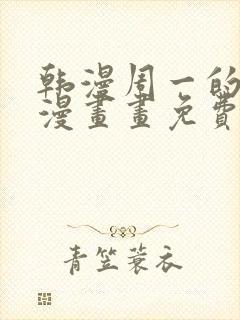 韩漫周一的
漫畫畫免費
青笠蓑衣